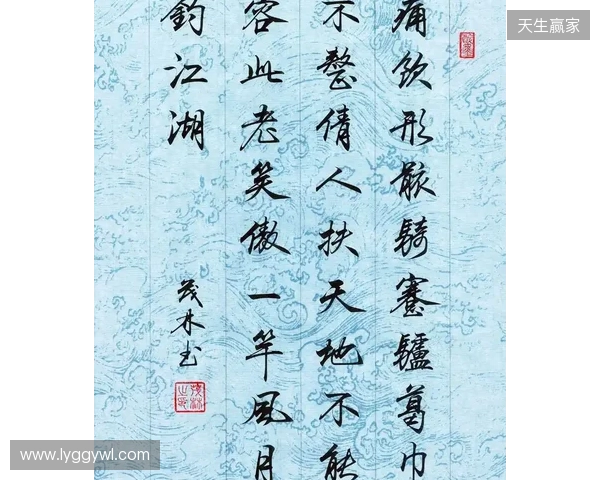 天生赢家
痛飲形骸騎蹇驢葛巾
不整倩人扶天地不能
容此老笑傲一竿風月
釣江湖
茂林书
www.lyggywl.com